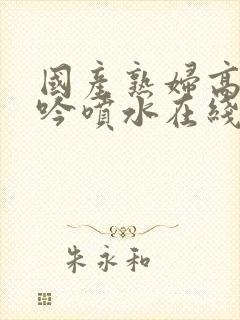 國產熟婦高
吟噴水在綫
朱永和